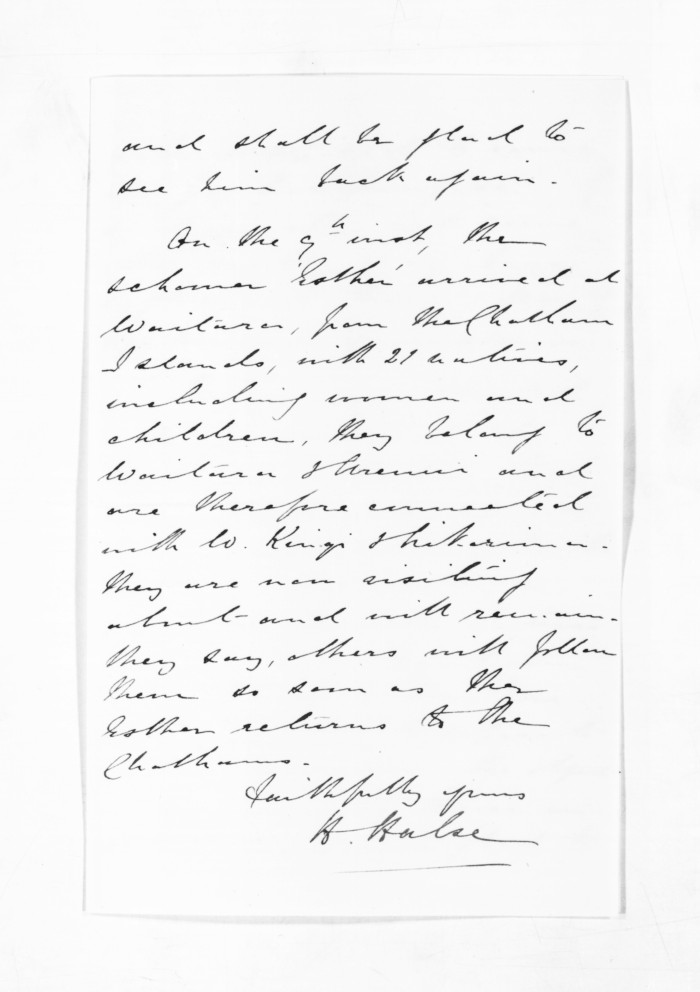 and shall be glad to
see him back again.
On the 9th inst, the
schooner 'Esther' arrived at
Waitara, from the Chatham
Islands, with 21 natives,
including women and
children, they belong to
Waitara & Urenui and
are therefore connected
with W. Kingi &
They are now visiting
about and will remain
they say, others will follow
them so soon as the
Esther returns to the
Chathams.
Faithfully yours
H. Halse